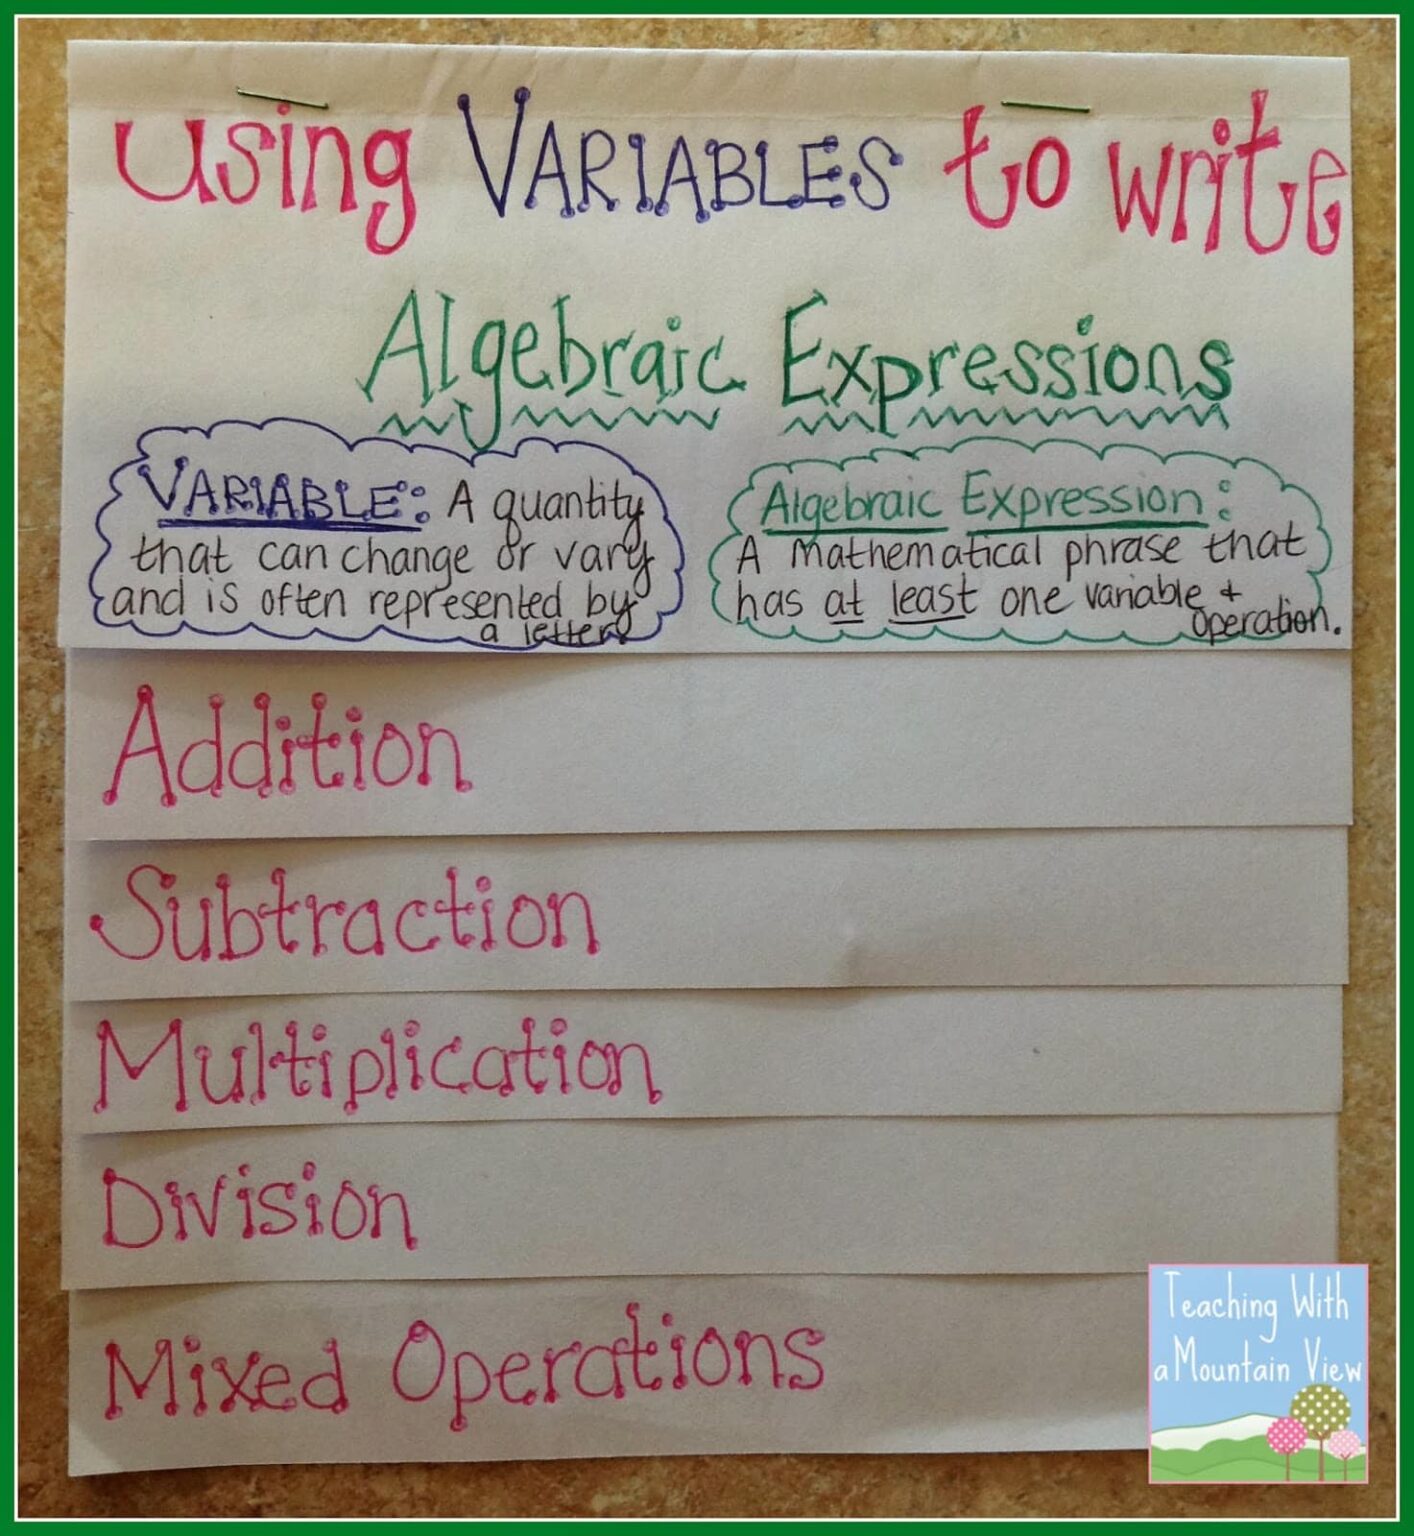 using VARIABLES to write
Algebraic Expressions
VARIABLE: A quantity
that can change or vary
and is often represented by
a letter
Algebraic Expression:
A mathematical phrase that
has at least one variable +
operation.
Addition
Subtraction
Multiplication
Division
Mixed Operations
Teaching With
a Mountain View